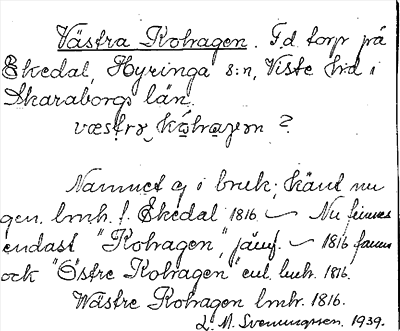 Västra Kohagen. F.d. torp på
Ekedal, Hyringa s:n, Viste hd i
Skaraborgs län.
væstrɔ kóhagen ?
Namnet ej i bruk; känt nu
gen. lmh. f. Ekedal 1816. — Nu finnes
endast "Kohagen", jämf. — 1816 fanns
ock "Östre Kohagen" enl. lmh. 1816.
Wästre Kohagen lmhr. 1816.
L. M. Svenungsen. 1939.